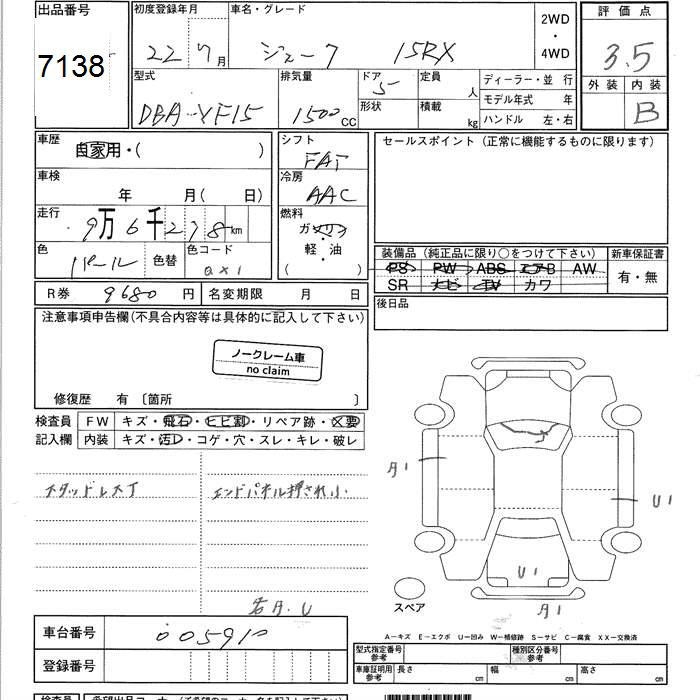 出品番号 初度登録年月 車名・グレード 2WD 評価点
7138 22 7月 ジューク 15RX ・ 3.5
4WD
型式 排気量 ドア 5 定員 人 ディーラー・並 行 外装 内装
DBA-YF15 1500cc 形状 積載 kg モデル年式 年 B
ハンドル 左・右
車歴 自家用・( ) シフト FAT セールスポイント (正常に機能するものに限ります)
車検 年 月( 日) 冷房 AAC
走行 9万6千278km 燃料 ガソリン
軽・油
( )
色 パール 色替 色コード QX1 装備品 (純正品に限り○をつけて下さい) 新車保証書
PS PW ABS エアB AW 有・無
SR ナビ TV カワ
R券 9680円 名変期限 月 日 後日品
注意事項申告欄(不具合内容等は具体的に記入して下さい)
ノークレーム車
no claim
修復歴 有 〔箇所 〕
検査員 FW キズ・飛石・ヒビ割・リペア跡・X要
記入欄 内装 キズ・汚レ・コゲ・穴・スレ・キレ・破レ
スタッドレス丁 エンドパネル押され小
A1
U1
U1
A1
スペア
A-キズ E-エクボ U-凹み W-補修跡 S-サビ C-腐食 XX-交換済
車台番号
登録番号
型式指定番号 参考 種別区分番号 参考
車庫証明用 参考 長さ cm 幅 cm 高さ cm
検査員